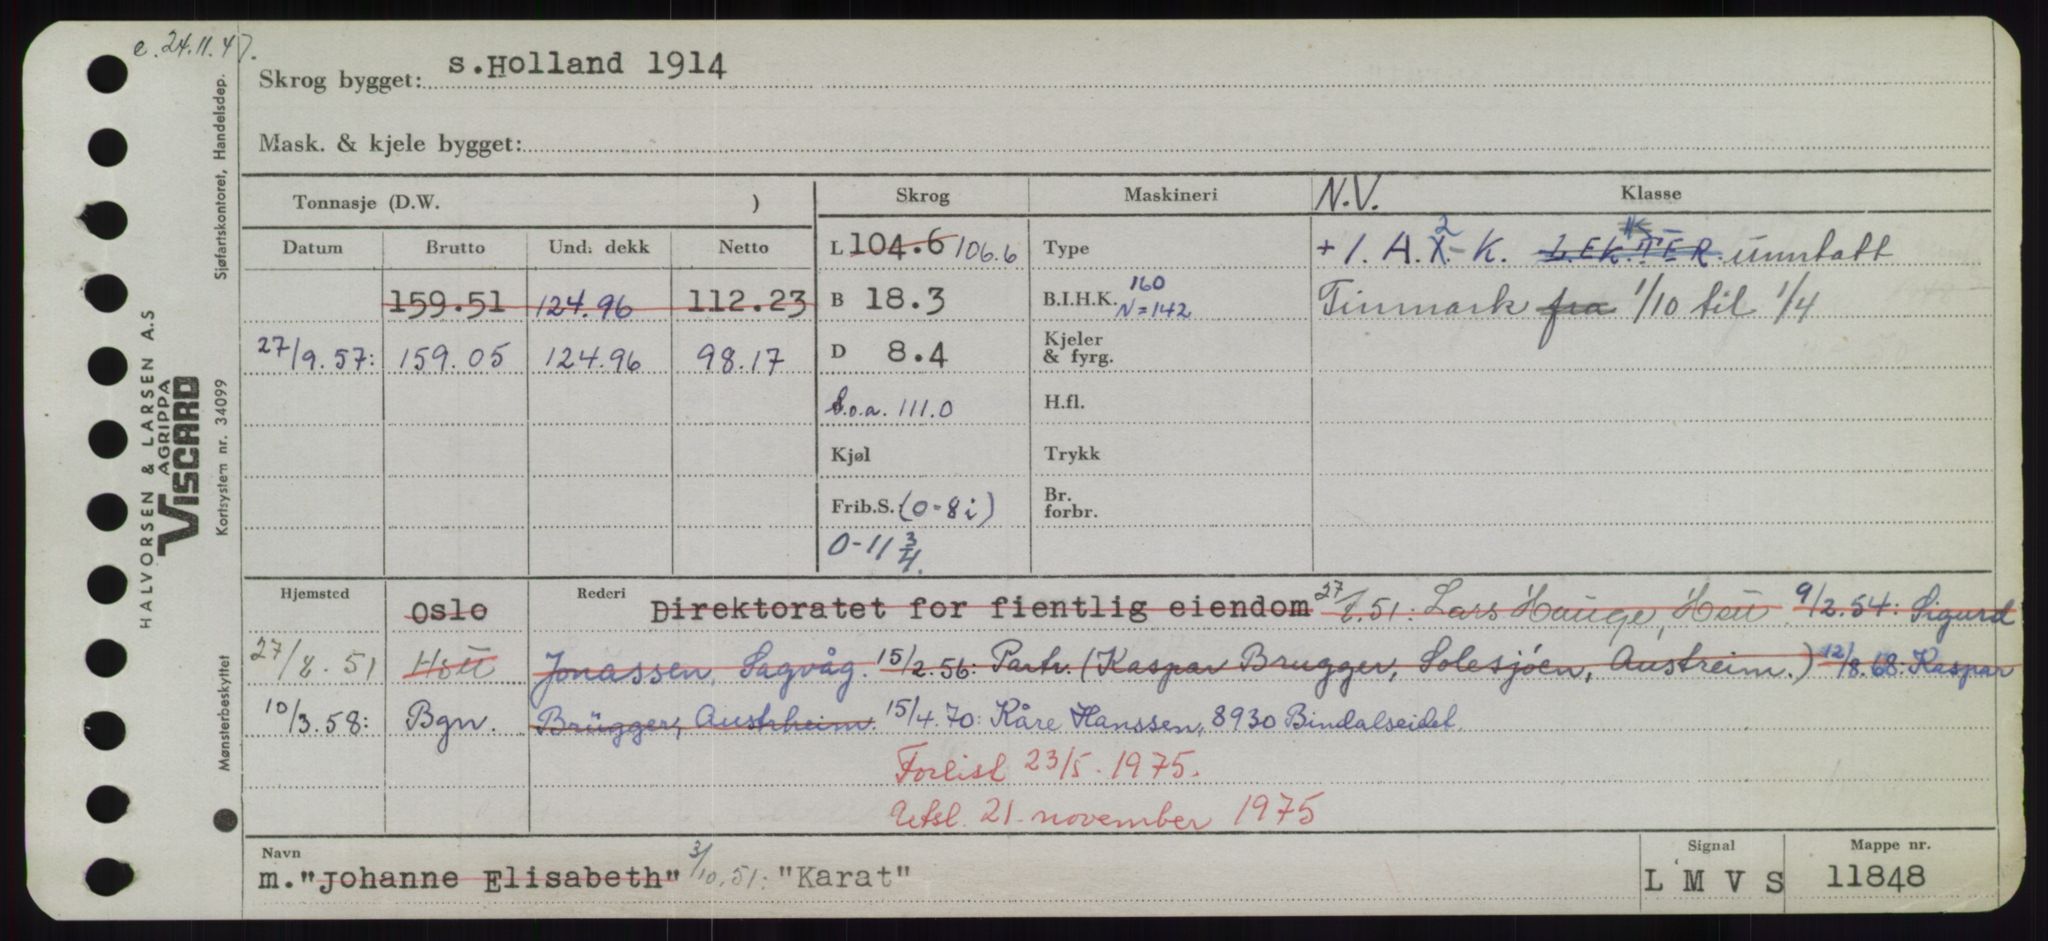 e. 24.11.47.
Skrog bygget: s.Holland 1914
Mask. & kjele bygget:
Tonnasje (D.W. )
Skrog
Maskineri
N.V. Klasse
Datum Brutto Und. dekk Netto
L 104.6 106.6
Type
+ 1. A. X 2 - K. LEKTER unntatt
159.51 124.96 112.23
B 18.3
B.I.H.K. 160
N=142
Finmark fra 1/10 til 1/4
27/9.57: 159.05 124.96 98.17
D 8.4
Kjeler
& fyrg.
l.o.a. 111.0
H.fl.
Kjøl
Trykk
Frib.S. (0-8i)
Br.
forbr.
0-11 3/4.
Hjemsted Oslo
Rederi Direktoratet for fientlig eiendom 27/8.51: Lars Hauge, 9/2.54: Sigurd
27/8.51 Jonassen, Sagvåg. 15/2.56: Partr. (Kaspar Brugger, Solesjöen, Austreim.) 12/8.68: Kaspar
10/3.58: Bgn. Brügger, Austrheim. 15/4.70: Kåre Hanssen, 8930 Bindalseidet.
Forlist 23/5.1975.
Utsl. 21. november 1975
Navn
m. "Johanne Elisabeth" 3/10.51: "Karat"
Signal
L M V S
Mappe nr.
11848
HALVORSEN & LARSEN A.S
AGRIPPA
VISCARD
Mønsterbeskyttet Kortsystem nr. 34099 Sjøfartskontoret, Handelsdep.